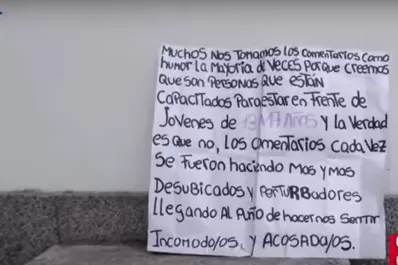 MUCHOS NOS TOMAMOS LOS COMENTARIOS COMO
humor LA MAYORIA de VECES PORQUE CREEMOS
QUE SON PERSONAS QUE ESTÁN
CAPACITADOS PARA ESTAR EN FRENTE DE
JOVENES DE 13 A 17 AÑOS Y LA VERDAD
es QUE NO, LOS COMENTARIOS CADA VEZ
SE FUERON HACIENDO MAS Y MAS
DESUBICADOS Y PERTURBADORES
LLEGANDO AL PUTO DE HACERNOS SENTIR
INCOMODO/OS, Y ACOSADA/OS.